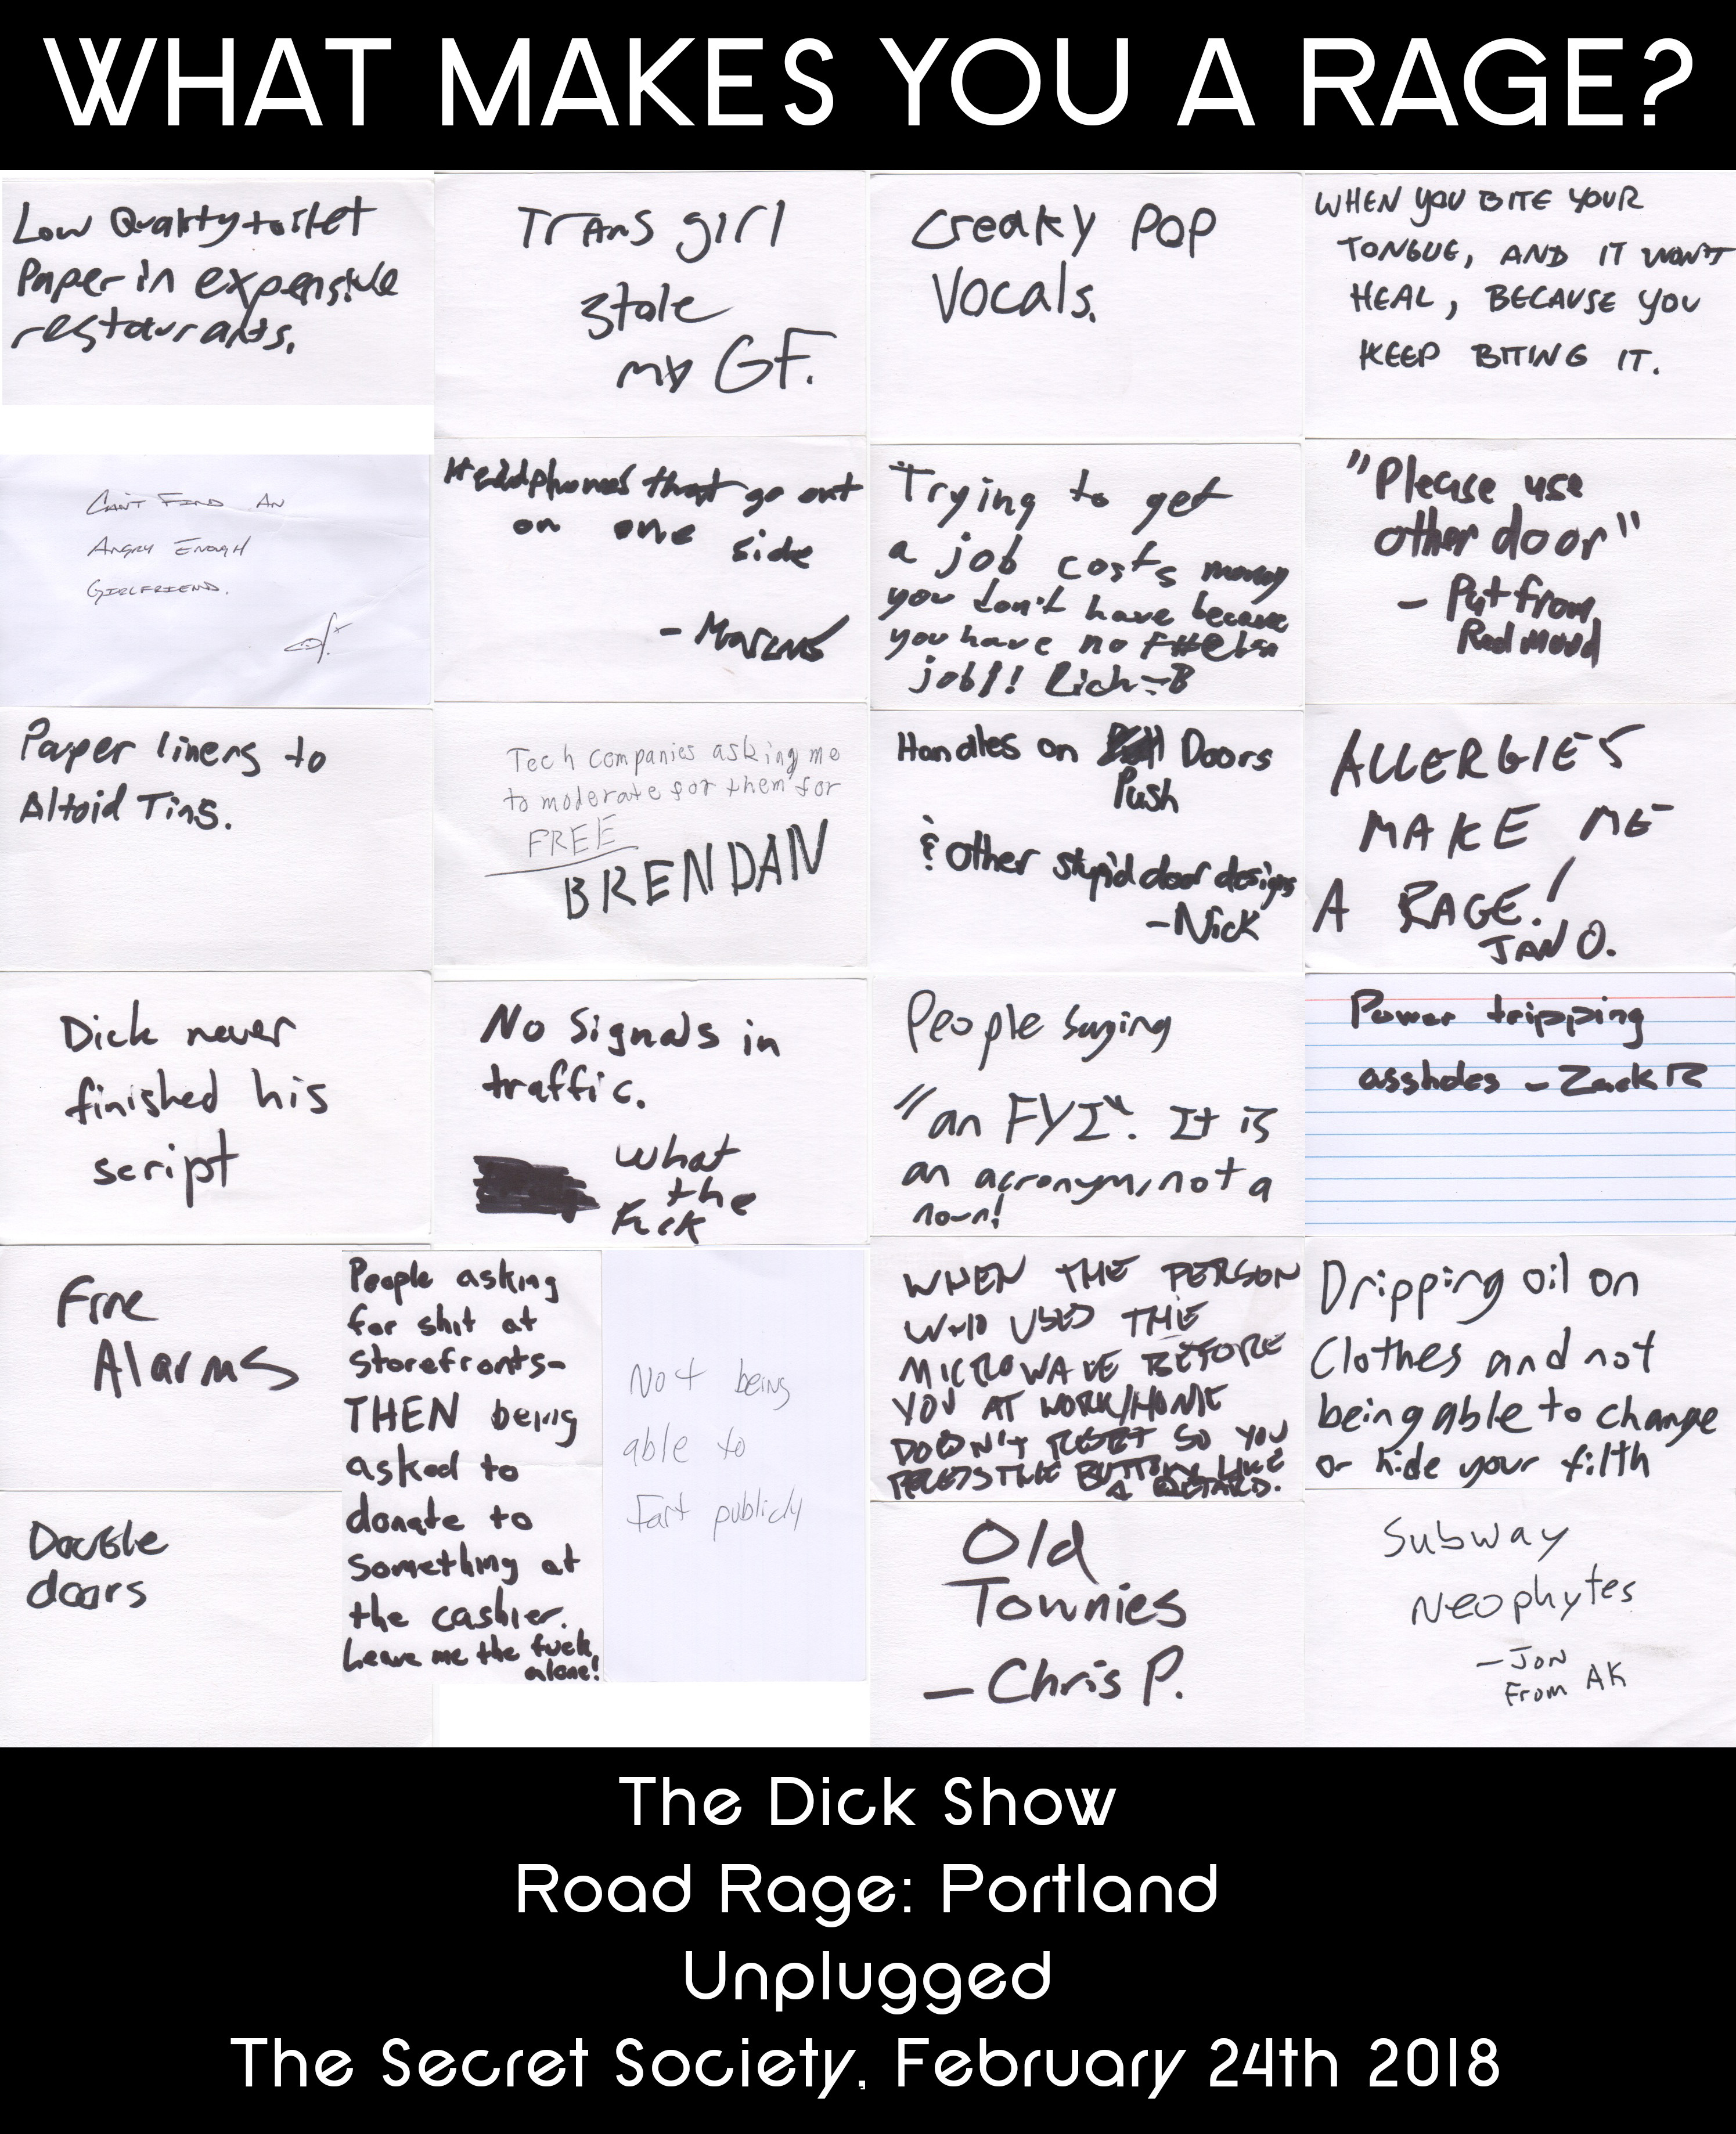 WHAT MAKES YOU A RAGE?
Low Quality toilet
Paper in expensive
restaurants.
Trans girl
stole
my GF.
Creaky Pop
Vocals.
WHEN YOU BITE YOUR
TONGUE, AND IT WON'T
HEAL, BECAUSE YOU
KEEP BITING IT.
CAN'T FIND AN
ANGRY ENOUGH
GIRLFRIEND.
Headphones that go out
on one side
- Marcus
Trying to get
a job costs money
you don't have because
you have no
job!! Rich-B
"Please use
other door"
- Pat from
Red Mood
Paper liners to
Altoid Tins.
Tech companies asking me
to moderate for them for
FREE
BRENDAN
Handles on Doors
Push
& Other stupid door designs
-Nick
ALLERGIES
MAKE ME
A RAGE!
JAN O.
Dick never
finished his
script
No Signals in
traffic.
What
the
Fuck
People saying
"an FYI". It is
an acronym, not a
noun!
Power tripping
assholes - Zack R
Fire
Alarms
People asking
for shit at
storefronts-
THEN being
asked to
donate to
something at
the cashier.
Leave me the fuck
alone!
Not being
able to
fart publicly
WHEN THE PERSON
WHO USED THE
MICROWAVE BEFORE
YOU AT WORK/HOME
DOESN'T RESET SO YOU
PRESS THE BUTTON LIKE
A RETARD.
Dripping oil on
Clothes and not
being able to change
or hide your filth
Double
doors
Old
Townies
- Chris P.
Subway
Neophytes
- Jon
From AK
The Dick Show
Road Rage: Portland
Unplugged
The Secret Society, February 24th 2018